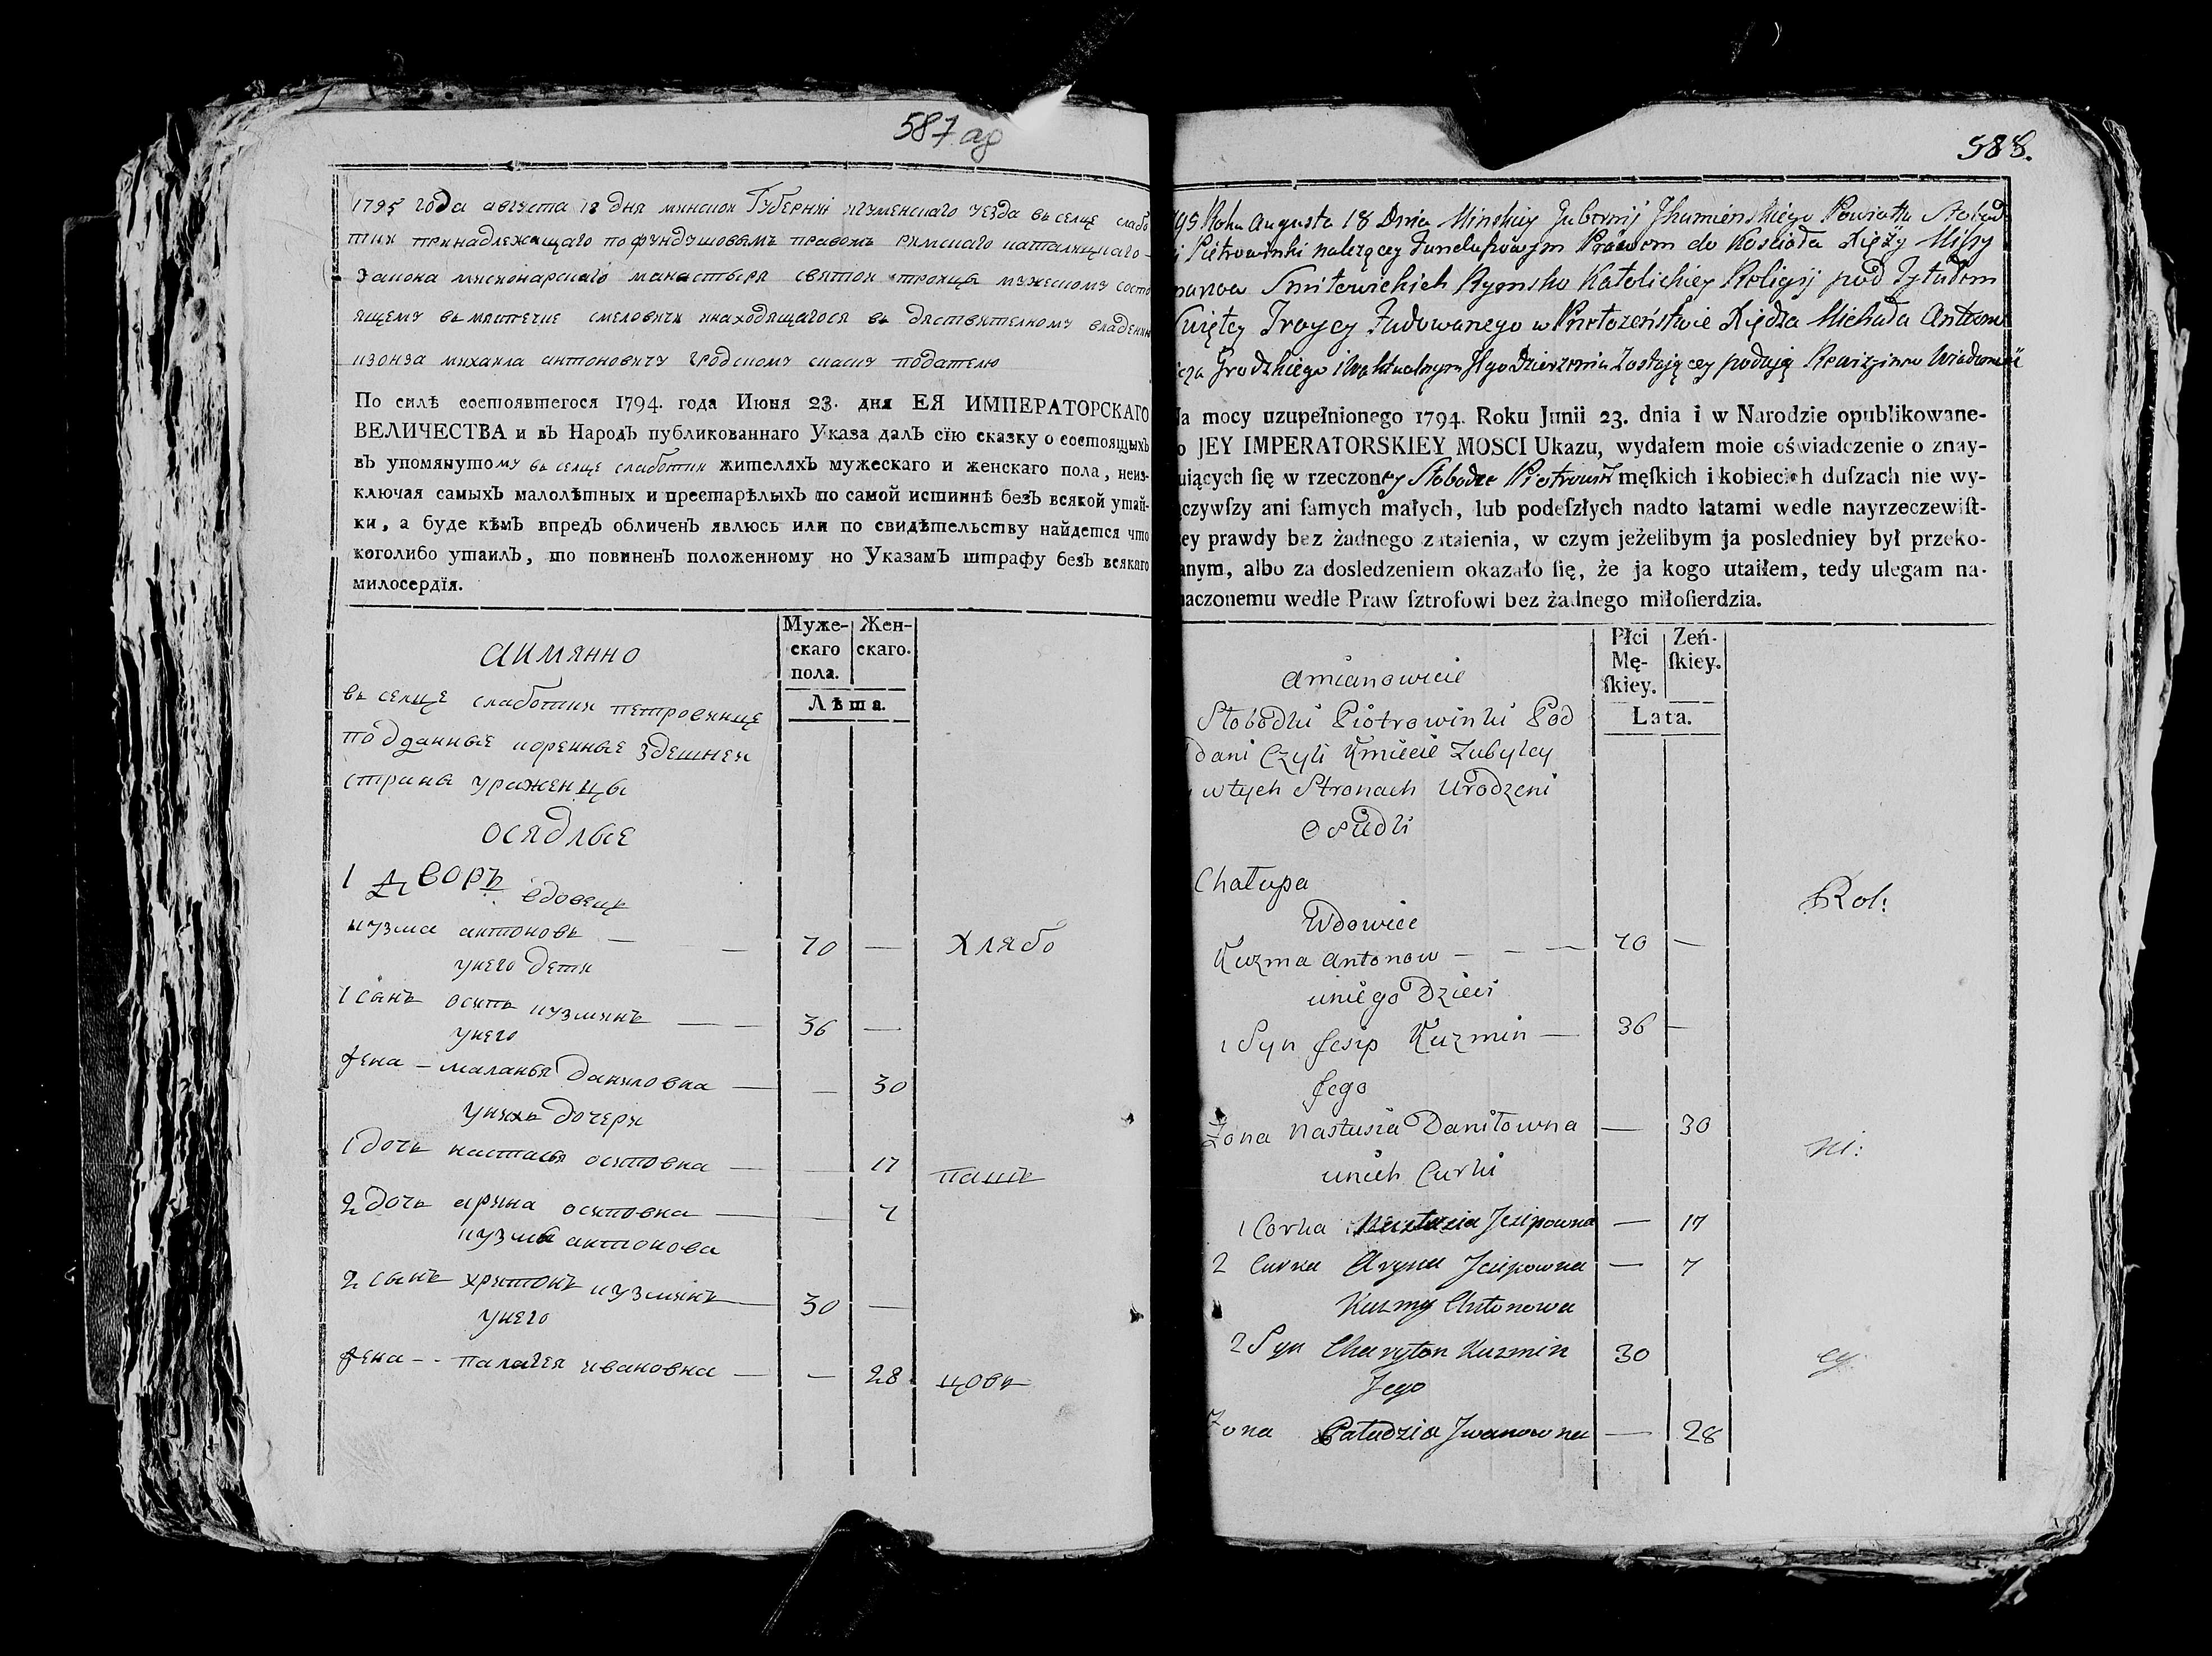 587 об
1795 года августа 18 дня минскои Губерніи игуменскаго уезда въ селце слабо
тки принадлежащаго по фундушовымъ правомъ римскаго каталицкаго
закона мисионарскаго манастыря святои троицы мужескому состо
ящему въ мястечке смеловичи находящагося въ действителному владении
ксонза михаила антоновича Гродскому сказку подателю
По силѣ состоявшегося 1794. года Июня 23. дня ЕЯ ИМПЕРАТОРСКАГО
ВЕЛИЧЕСТВА и въ Народъ публикованнаго Указа далъ сїю сказку о состоящыхъ
въ упомянутому въ селце слаботки жителяхъ мужескаго и женскаго пола, неиз-
ключая самыхъ малолѣтных и престарѣлыхъ по самой истиннѣ безъ всякой утай-
ки, а буде кѣмъ впредъ обличенъ явлюсь или по свидѣтельству найдется что
коголибо утаилъ, то повиненъ положенному по Указамъ штрафу безъ всякаго
милосердїя.
Муже-скаго пола. Жен-скаго.
Лѣта.
аимянно
въ селце слаботки петровинце
подданные коренные здешнеи
страны уроженцы
осядлые
1 дворъ
вдовецъ
кузма антоновъ — — 70 — хлябо
унего дети
1 сынъ осипъ кузминъ — — 36 —
унего
жена — маланья даниловна — — 30
унихъ дочери
1 дочь настасья осиповна — — 17 паш
2 дочь арина осиповна — — 7
кузмы антонова
2 сынъ харитонъ кузминъ — 30 —
унего
жена -- палагея ивановна — — 28 цовъ
588.
95 Roku Augusta 18 Dnia Minskiey Gubernij Ihumienskiego Powiatu Słobod
i Piotrowinki należącey Funduszowym Prawem do Kościoła Xięży Missy
narow Smiłowickich Rzymsko Katolickiey Religij pod Tytułem
Swiętey Troycy Fudowanego w Przełożeństwie Xiędza Michała Antono
cza Grodzkiego i w aktualnym Jego Dzierżeniu Zostającey podają Rewizyina Wiadomość
a mocy uzupełnionego 1794. Roku Junii 23. dnia i w Narodzie opublikowane-
o JEY IMPERATORSKIEY MOSCI Ukazu, wydałem moie oświadczenie o znay-
uiących ſię w rzeczoney Słobodce Piotrowin męſkich i kobiecich duſzach nie wy-
ączywſzy ani ſamych małych, lub podeſzłych nadto latami wedle nayrzeczewiſt-
zey prawdy bez żadnego zataienia, w czym jeżelibym ja posledniey był przeko-
anym, albo za dosledzeniem okazało ſię, że ja kogo utaiłem, tedy ulegam na-
naczonemu wedle Praw ſztrofowi bez żadnego miłoſierdzia.
Płci Mę-ſkiey. Zeń-ſkiey.
Lata.
amianowicie
Słobodki Piotrowinki Pod
dani Czyli Kmiecie Zubylcy
w tych Stronach Urodzeni
Osiadli
Chałupa Rol:
Wdowiec
Kuzma Antonow — — — 70 —
uniego Dzieci
1 Syn Jesip Kuzmin — 36 —
Jego
Żona Nastusia Daniłowna — 30
unich Curki ni:
1 Corka Nastazia Jesipowna — 17
2 Curka Aryna Jesipowna — 7
Kuzmy Antonowa
2 Syn Charyton Kuzmin 30 cy
Jego
Żona Pałudzia Jwanowna — 28